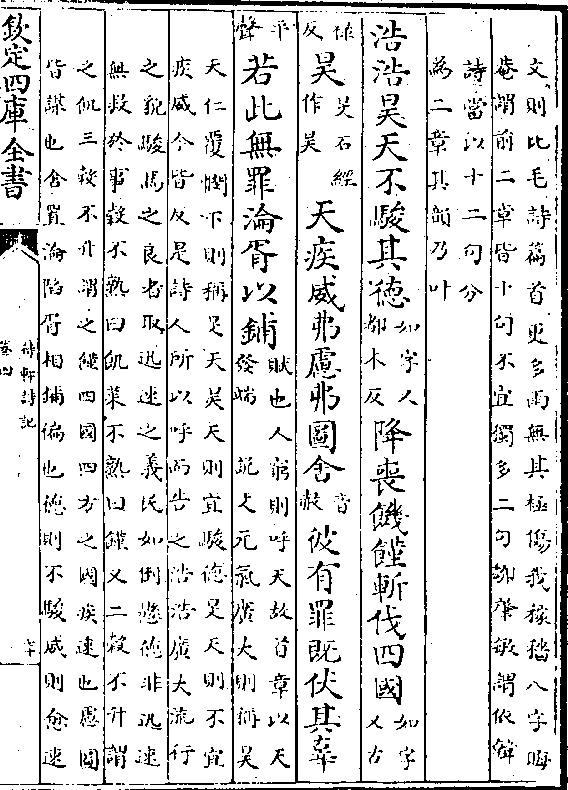 文則比毛詩篇首更多雨無其極傷我稼穡八字晦
菴謂前二章皆十句不宜獨多二句鄒肇敏謂依韓
詩當以十二句分
為二章其韻乃叶
浩浩昊天不駿其德如字又都木反降喪饑饉斬伐四國如字又古
祿反昊昊石經作旻天疾威弗慮弗圖舍音赦彼有罪既伏其辜
平聲若此無罪淪胥以鋪賦也人窮則呼天故首章以天發端說文元氣廣大則稱昊
天仁覆憫下則稱旻天昊天則宜駿德旻天則不宜
疾威今皆反是詩人所以呼而告之浩浩廣大流行
之貌駿馬之良者取迅速之義民如倒懸德非迅速
無救於事穀不熟曰飢菜不熟曰饉又二穀不升謂
之飢三穀不升謂之饉四國四方之國疾速也慮圖
皆謀也舍置淪陷胥相鋪徧也德則不駿威則愈速
欽定四庫全書
待軒詩記
卷四